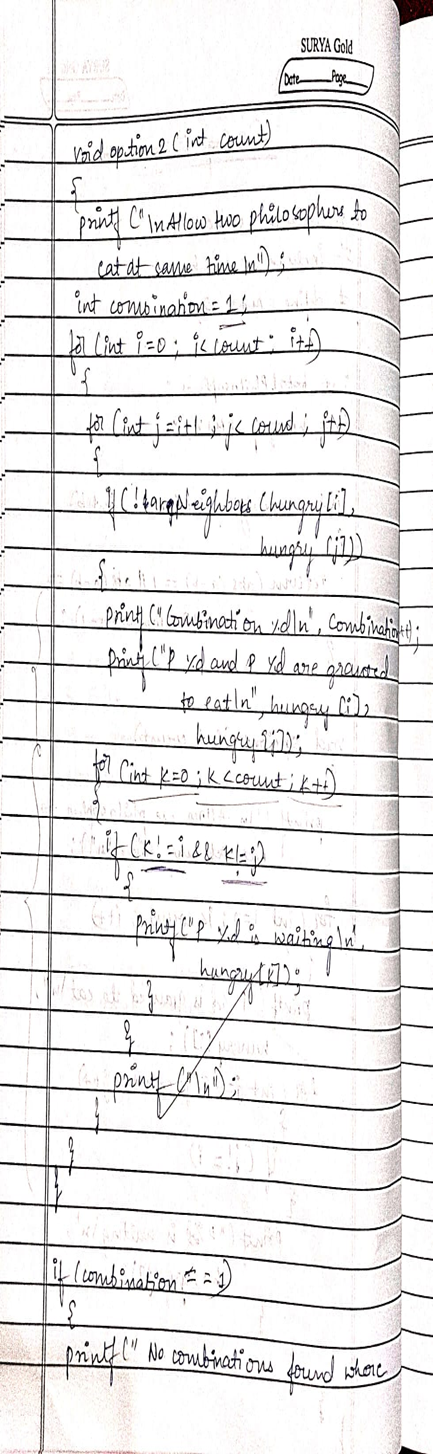 SURYA Gold
Date Page
void option2 (int count)
{
printf ("\nAllow two philosophers to
eat at same time\n");
int combination = 1;
for (int i=0 ; i< count ; i++)
{
for (int j=i+1 ; j< count ; j++)
{
if (! Neighbors (hungry[i],
hungry [j]))
{
printf ("Combination %d\n", combination++);
printf ("P %d and P %d are granted
to eat\n", hungry [i],
hungry [j]);
for (int k=0 ; k<count ; k++)
{
if (k!=i && k!=j)
{
printf ("P %d is waiting \n",
hungry[k]);
}
}
printf ("\n");
}
}
}
if (combination == 1)
{
printf (" No combinations found where